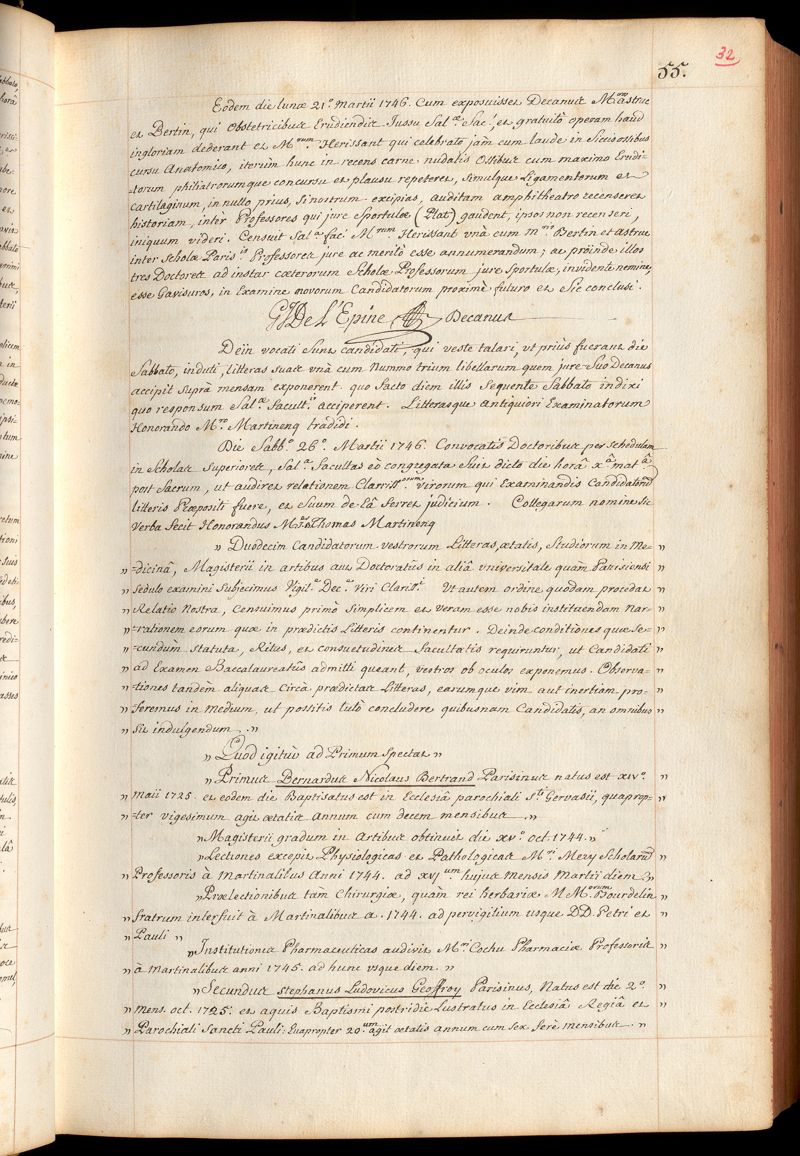 32
55.
Eodem die lunæ 21.ª Martii 1746. Cum exposuisset Decanus M.ros astruc
et Bertin, qui Obstetricibus Erudiendis Jussu Sal.æ Fac, et gratuitò operam haud
ingloriam dederant et M.rum Herissant qui celebrato jàm cum laude in Siccis ossibus
cursu Anatomico, iterùm hunc in recens carne nudatis Ossibus cum maximo Erudi-
-torum philiatrorumque concursu et plausu repeteret, simulque Ligamentorum et
Cartilaginum, in nullo prius, si nostrum excipias, auditam amphitheatro recenseret
historiam, inter Professores qui jure Sportulæ (Plat) gaudent, ipsos non recenseri,
iniquum videri. Censuit Sal.ª fac. M.rum Herissant unà cum m.ris Bertin et astruc
inter Scholæ Paris.is Professores jure ac meritò esse annumerandum; ac proinde illos
tres Doctores ad instar cæterorum Scholæ Professorum jure Sportulæ, invidente nemine,
esse Gavisuros, in Examine novorum Candidatorum proximè futuro et Sic conclusi.
G J De L'Epine Decanus
Deïn vocati Sunt candidati, qui veste talari, ut priùs fuerant die
Sabbato, induti, litteras suas unà cum nummo trium libellarum quem jure Suo Decanus
accipit suprà mensam exponerent. quo facto diem illis Sequente Sabbato indixi
quo responsum Sal.æ Facult.is acciperent. Litterasque antiquiori Examinatorum
Honorando M.ro Martinenq tradidi.
Die Sabb.o 26.º Martii 1746. Convocatis Doctoribus per Schedulam
in Scholas Superiores, Sal.ª Facultas eò congregata fuit dicto die horâ x.ª mat.ª
post Sacrum, ut audiret relationem Clariss.orum virorum qui Examinandis Candidatorum
litteris Præpositi fuere, et Suum de lâ ferret judicium. Collegarum nomine Sic
Verba fecit Honorandus M.er Thomas Martinenq
" Duodecim Candidatorum vestrorum Litteras, ætatis, Studiorum in Me- "
" -dicinâ, Magisterii in artibus aut Doctoratûs in aliâ universitate quam Parisiensi "
" sedulo examini Subjecimus Vigil.e Dec.e Viri Clariss.i Ut autem ordine quodam procedat "
" Relatio Nostra, Censuimus primò Simplicem et veram esse nobis instituendam Nar- "
" -rationem eorum quæ in prædictis Litteris continentur. Deinde conditiones quæ Se- "
" -cundùm statuta, Ritus, et consuetudines Facultatis requiruntur, ut Candidati "
" ad Examen Baccalaureatûs admitti queant, vestros ob oculos exponemus. Observa- "
" -tiones tandem aliquas Circà prædictas Litteras, earumque vim aut inertiam pro- "
" feremus in medium, ut possitis tutò concludere quibusnam Candidatis, an omnibus "
" sit indulgendum. "
" Quod igitur ad Primum Spectat "
" Primus Bernardus Nicolaus Bertrand Parisinus natus est XIV.º
" maii 1725. et eodem die Baptisatus est in Ecclesiâ parochiali S.ti Gervasii, quaprop-
" -ter vigesimum agit ætatis annum cum decem mensibus. "
" Magisterii gradum in Artibus obtinuit die XV.º oct. 1744. "
" Lectiones excepit Physiologicas et Pathologicas M.ri Mery Scholarum "
" Professoris à Martinalibus Anni 1744. ad XVJ.um hujus mensis Martii diem "
" Prælectionibus tàm Chirurgiæ, quàm rei herbariæ MM.orum Bourdelin "
" fratrum interfuit à Martinalibus a. 1744. ad pervigilium usque DD. Petri et "
" Pauli "
" Institutiones Pharmaceuticas audivit M.ri Cochu Pharmaciæ Professoris "
" à martinalibus anni 1745. ad hunc usque diem. "
" Secundus Stephanus Ludovicus Geoffroy Parisinus, Natus est die 2.º "
" mens. oct. 1725. et aquis Baptismi postridie Lustratus in Ecclesiâ Regiâ et "
" Parochiali Sancti Pauli; Quapropter 20.um agit ætatis annum cum Sex ferè mensibus. "